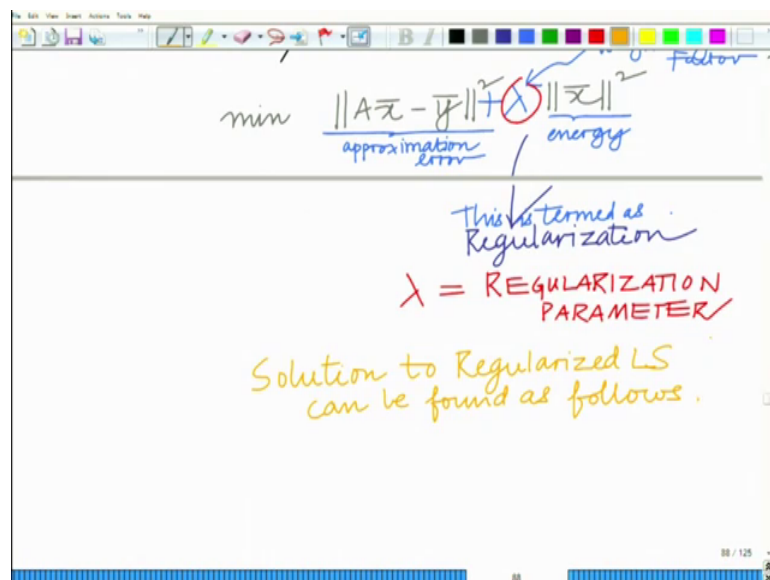 File Edit View Insert Actions Tools Help
B I
Factor
min ||Ax̄ − ȳ||² + λ ||x̄||²
approximation error
energy
This is termed as
Regularization
λ = REGULARIZATION
PARAMETER
Solution to Regularized LS
can be found as follows.
88 / 125
88